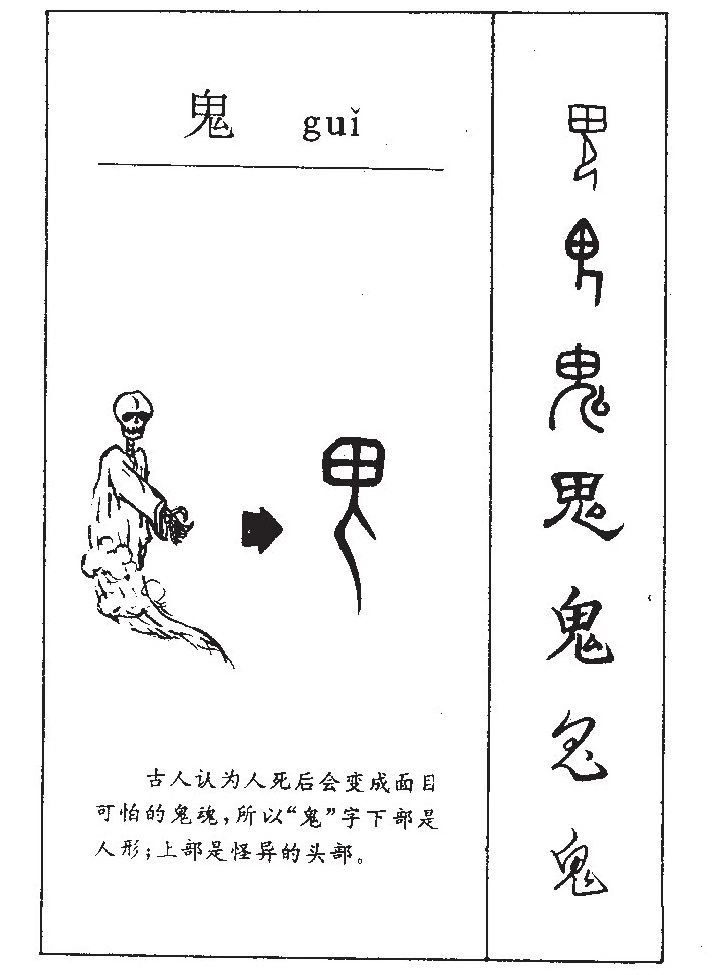 鬼 guǐ
古人认为人死后会变成面目
可怕的鬼魂，所以“鬼”字下部是
人形；上部是怪异的头部。
鬼
鬼
鬼
鬼
鬼
鬼
鬼